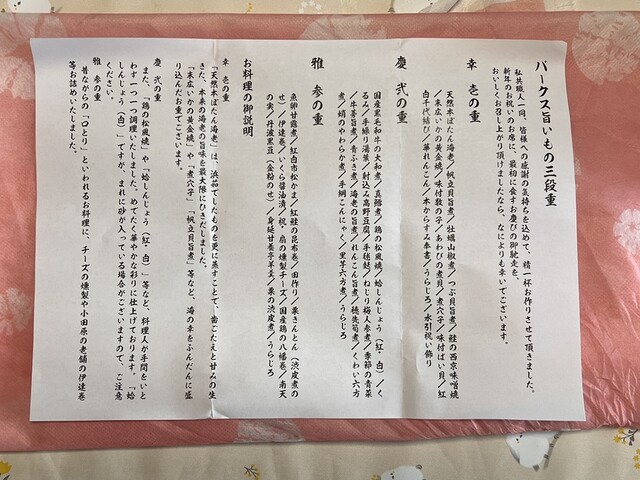 パークス旨いもの三段重
私共職人一同、皆様への感謝の気持ちを込めて、精一杯お作りさせて頂きました。
新年のお祝いのお席に、最初に食すお慶びの御馳走を、
おいしくお召し上がり頂けましたなら、なによりも幸いでございます。
幸 壱の重
天然本ぼたん海老／帆立貝旨煮／牡蠣山椒煮／つぶ貝旨煮／鮭の西京味噌焼
／末広いかの黄金焼／味付数の子／あわびの煮貝／煮穴子／味付ばい貝／紅
白千代結び／華れんこん／本からすみ奉書／うらじろ／水引祝い飾り
慶 弐の重
国産黒毛和牛の大和煮／真鱈煮／鶏の松風焼／蛤しんじょう（紅・白）／く
るみ／手綯り湯葉／射込み高野豆腐／手毬麩／ねじり梅人参煮／季節の青菜
／牛蒡旨煮／青ふき煮／海老の旨煮／れんこん旨煮／穂先筍煮／くわい六方
煮／蛸のやわらか煮／手綱こんにゃく／里芋六方煮／うらじろ
雅 参の重
魚卵甘露煮／紅白市松かま／紅鮭の昆布巻／田作り／栗きんとん（渋皮煮の
せ）／伊達巻／いくら醤油漬／祝・扇の燻製チーズ／国産鶏の八幡巻／南天
の実／丹波黒豆（金粉のせ）／身延甘養亭羊羹／栗の渋皮煮／うらじろ
お料理の御説明
幸 壱の重
「天然本ぼたん海老」は、浜茹でしたものを更に蒸すことで、歯ごたえと甘みの生
きた、本来の海老の旨味を最大限にひきだしました。
「末広いかの黄金焼」や「煮穴子」「帆立貝旨煮」等など、海の幸をふんだんに盛
り込んだお重でございます。
慶 弐の重
また、「鶏の松風焼」や「蛤しんじょう（紅・白）」等など、料理人が手間をいと
わず一つ一つ調理いたしました。めでたく華やかな彩りに仕上げております。「蛤
しんじょう（白）」ですが、まれに砂が入っている場合がございますので、ご注意
ください。
雅 参の重
昔ながらの「つのとり」といわれるお料理に、チーズの燻製や小田原の老舗の伊達巻
等お詰めいたしました。